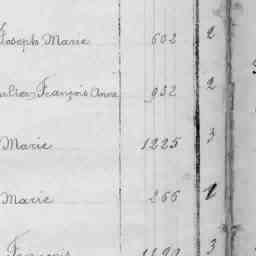 Joseph Marie 602 2
François Anne 932 2
Marie 1225 3
Marie 266 1
François 3